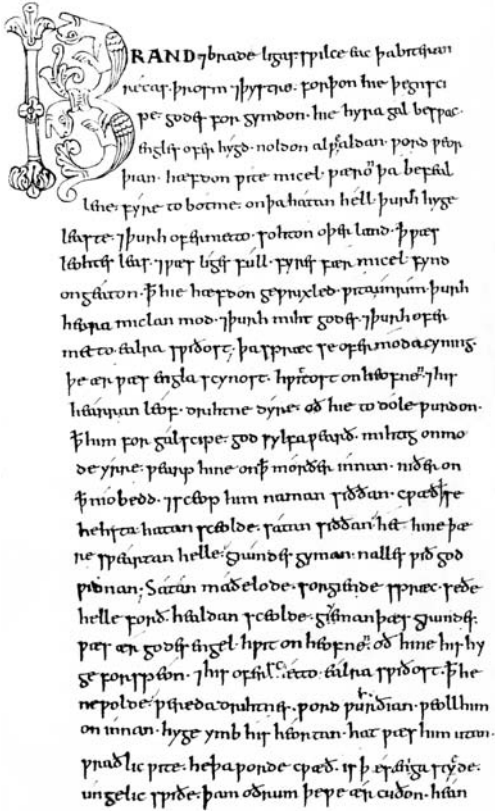 BRAND ⁊ brade ligas swilce eac þa biteran
recas · þrosm ⁊ þystro · forþon hie þegnsci
pe · godes for gymdon · hie hyra gal beswac ·
engles ofer hygd · noldon alwaldan · word weor
þian · hæfdon wite micel · wæron þa befeal
lene · fyre to botme · on þa hatan hell · þurh hyge
leaste · ⁊ þurh ofermetto · sohton oþer land · ꝥ wæs
leohtes leas · ⁊ wæs liges full · fyres fær micel fynd
ongeaton · ꝥ hie hæfdon gewrixled · wita unrim · þurh
heora miclan mod · ⁊ þurh miht godes · ⁊ þurh ofer
metto · ealra swiðost · þa spræc se ofermoda cyning ·
þe ær wæs engla scynost · hwitost on heofne · ⁊ his
hearran leof · drihtne dyre · oð hie to dole wurdon ·
ꝥ him for galscipe · god sylfa weard · mihtig on mo
de yrre · wearp hine on ꝥ morðer innan · niðer on
ꝥ niobedd · ⁊ sceop him naman siððan · cwæð ꝥ se
hehsta · hatan sceolde · satan siððan · het hine þæ
re sweartan helle · grundes gyman · nalles wið god
winnan ; Satan maðelode · sorgiende spræc · seðe
helle forð · healdan sceolde · gieman þæs grundes ·
wæs ær godes engel · hwit on heofne · oð hine his hy
ge forspeon · ⁊ his ofermetto · ealra swiðost · ꝥ he
ne wolde · wereda drihtnes · word wurðian · weoll him
on innan · hyge ymb his heortan · hat wæs him utan ·
wraðlic wite · he þa worde cwæð · is þes ænga styde ·
ungelic swiðe · þam oðrum þe we ær cuðon · hean